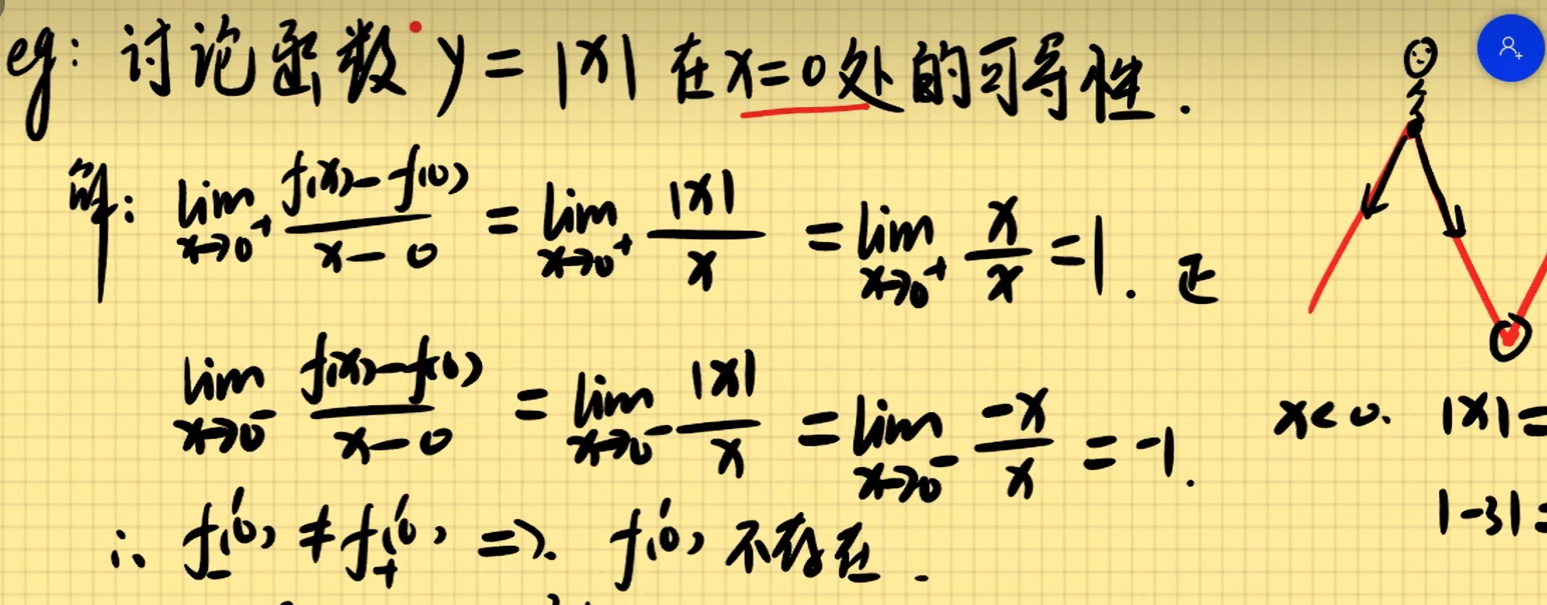 eg: 讨论函数 y = |x| 在x=0处的可导性.
解: lim x→0⁺ (f(x)-f(0))/(x-0) = lim x→0⁺ |x|/x = lim x→0⁺ x/x = 1. 正
lim x→0⁻ (f(x)-f(0))/(x-0) = lim x→0⁻ |x|/x = lim x→0⁻ -x/x = -1.
x<0. |x|=
|-3|=
∴ f₋'(0) ≠ f₊'(0) => f'(0) 不存在.